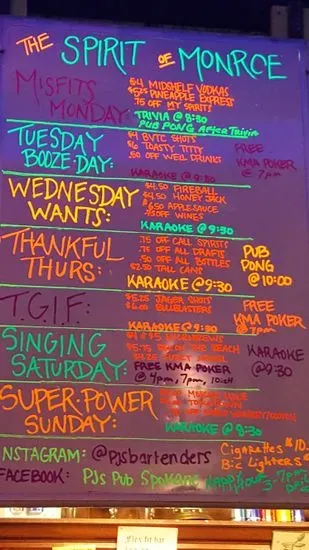 THE SPIRIT OF MONROE
MISFITS MONDAY:
$4 MIDSHELF VODKAS
$5.25 PINEAPPLE EXPRESS
.75 OFF MY SPIRITS
TRIVIA @ 8:30
PUB PONG AFTER TRIVIA
TUESDAY BOOZE-DAY:
$4 BVTC SHOTS
$6 TOASTY TITTY
.50 OFF WELL DRINKS
KARAOKE @ 9:30
FREE KMA POKER @ 7pm
WEDNESDAY WANTS:
$4.50 FIREBALL
$4.50 HONEY JACK
$6.50 APPLESAUCE
.75 OFF WINES
KARAOKE @ 9:30
THANKFUL THURS:
.75 OFF CALL SPIRITS
.75 OFF ALL DRAFTS
.50 OFF ALL BOTTLES
$2.50 TALL CANS
KARAOKE @ 9:30
PUB PONG @ 10:00
T.G.I.F:
$5.25 JAGER SHOTS
$6.00 BULLBUSTERS
KARAOKE @ 9:30
FREE KMA POKER @ 7pm
SINGING SATURDAY:
ON THE BEACH
FREE KMA POKER
@ 4pm, 7pm, 10:ish
KARAOKE @ 9:30
SUPER-POWER SUNDAY:
KARAOKE @ 8:30
INSTAGRAM: @pjsbartenders
Cigarettes $10.
B:C Lighters $
FACEBOOK: PJs Pub Spokane
HAPPY HOUR 3-7pm